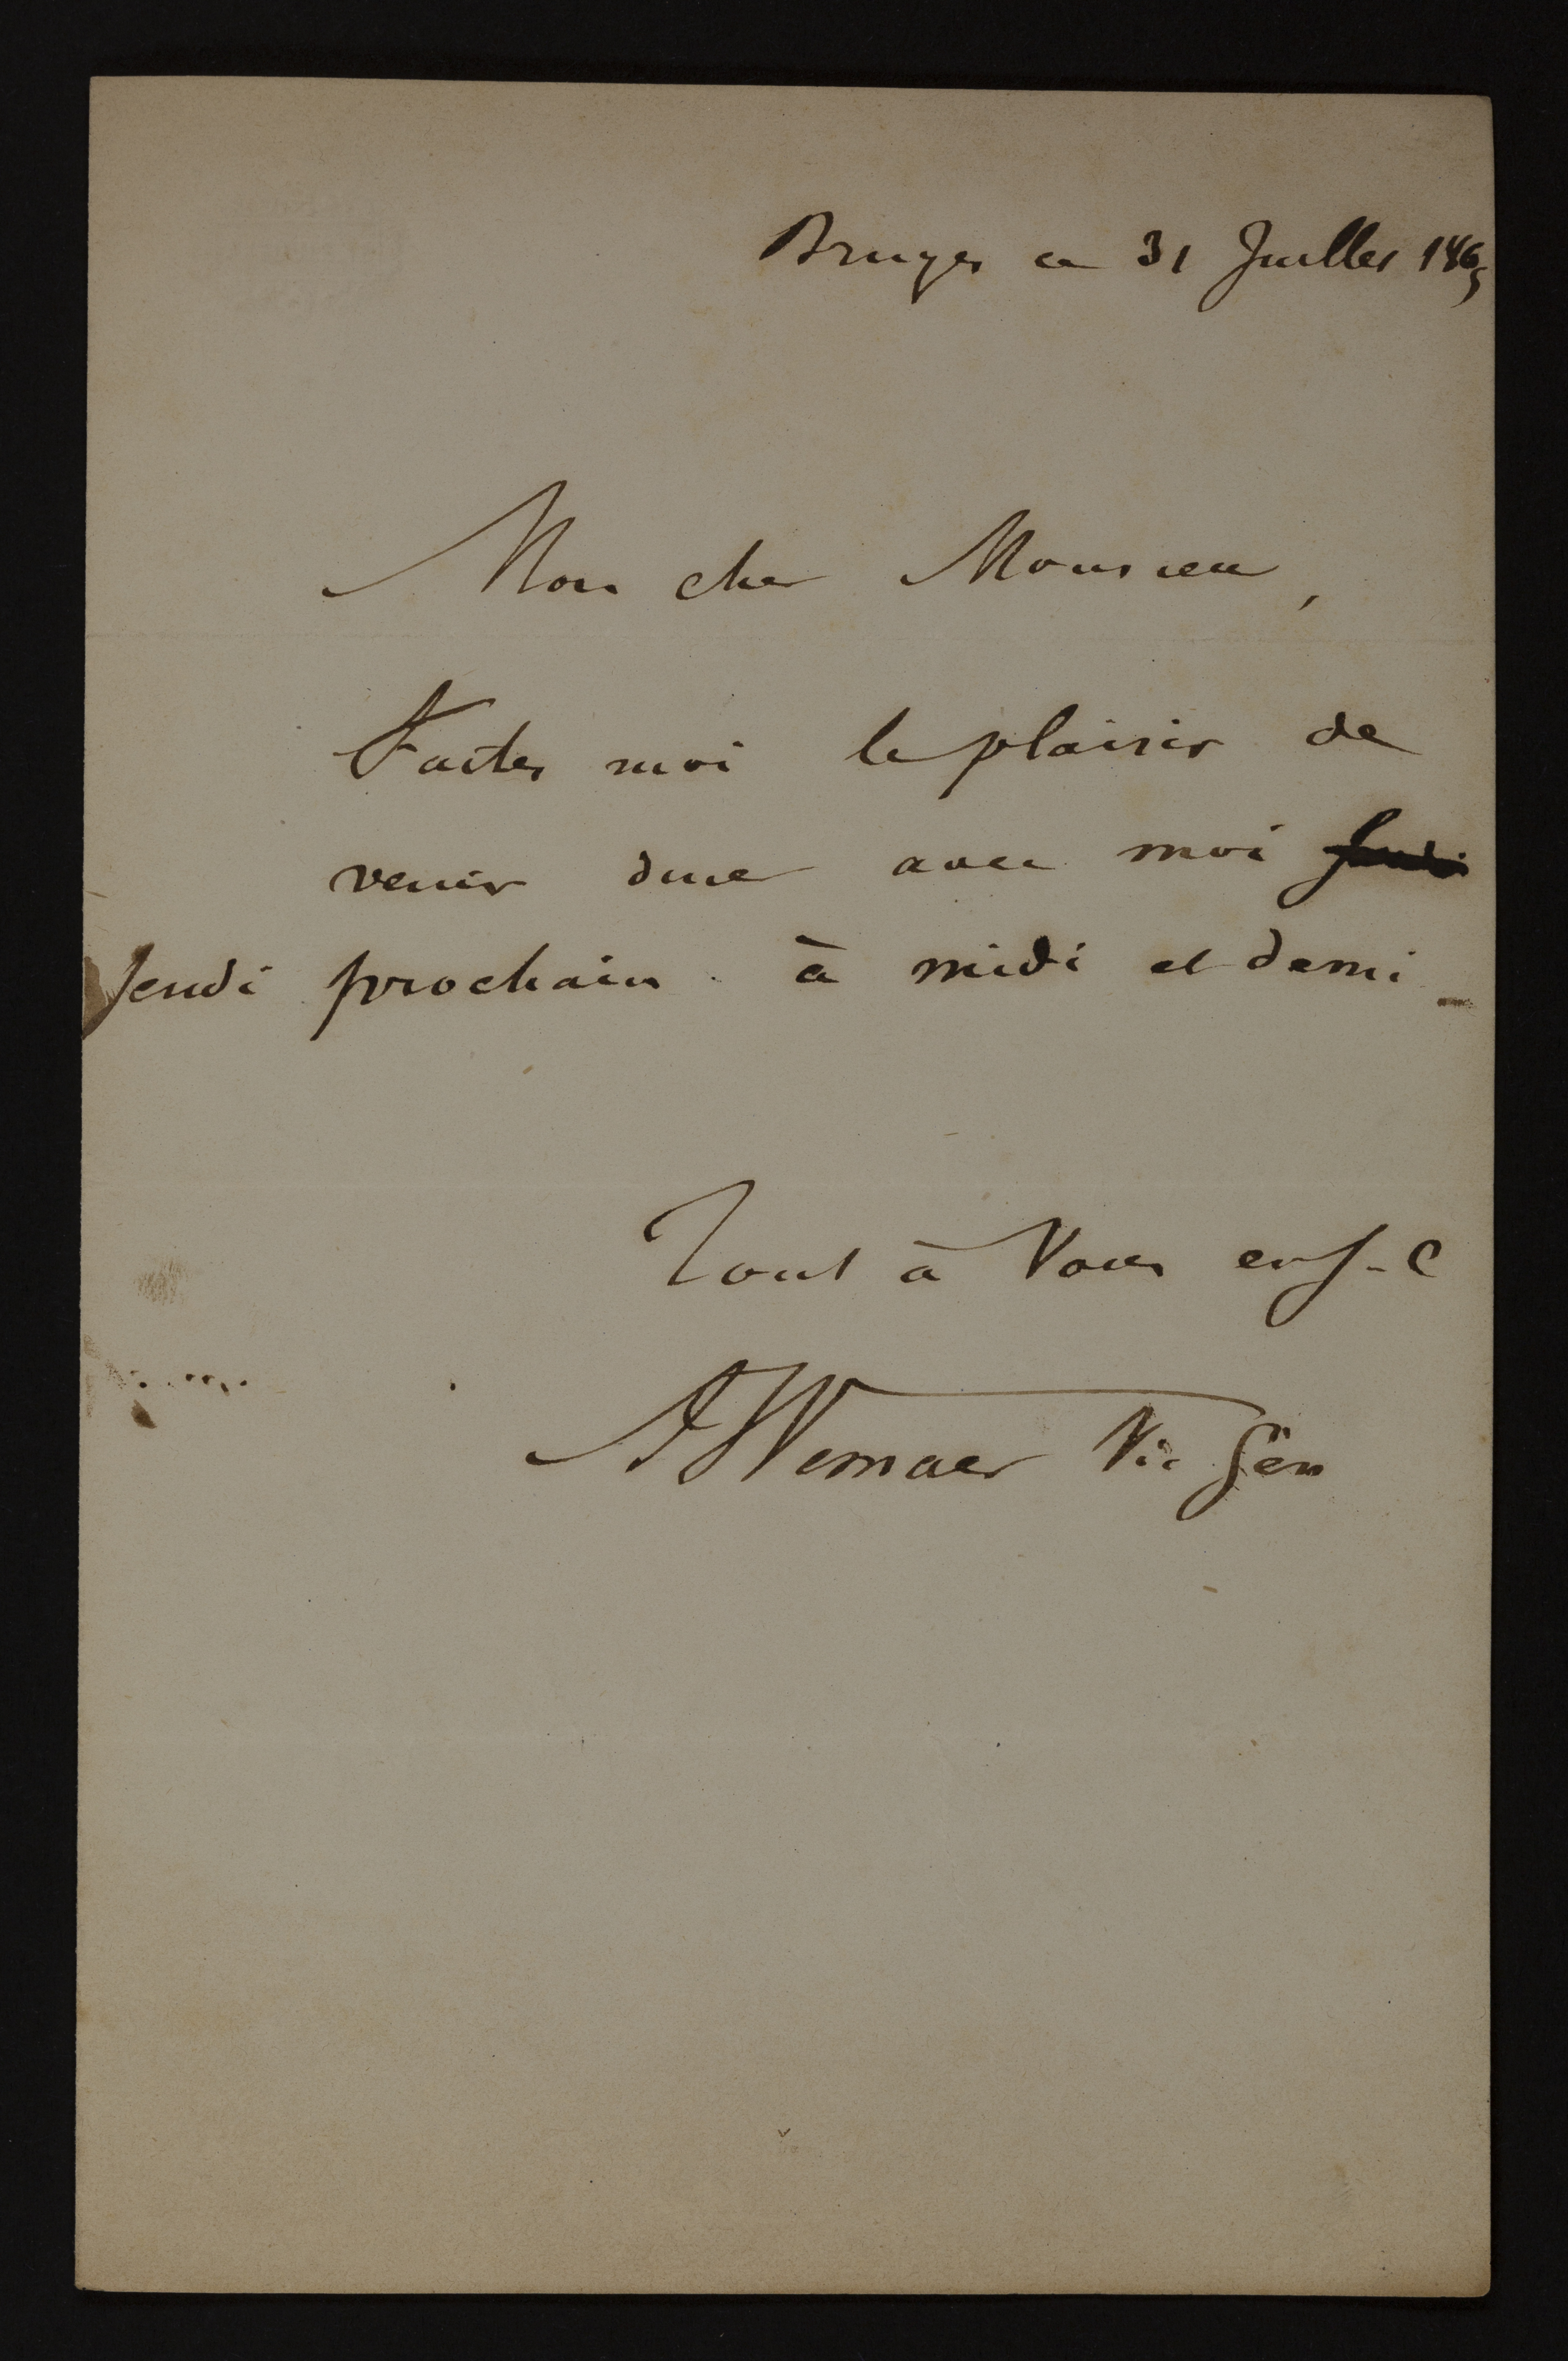 Bruges ce 31 Juillet 1865
Mon cher Monsieur,
Faites moi le plaisir de
venir diner avec moi
Jeudi prochain à midi et demi -
Tout à Vous en J-C
A Wemaer Vic Gén